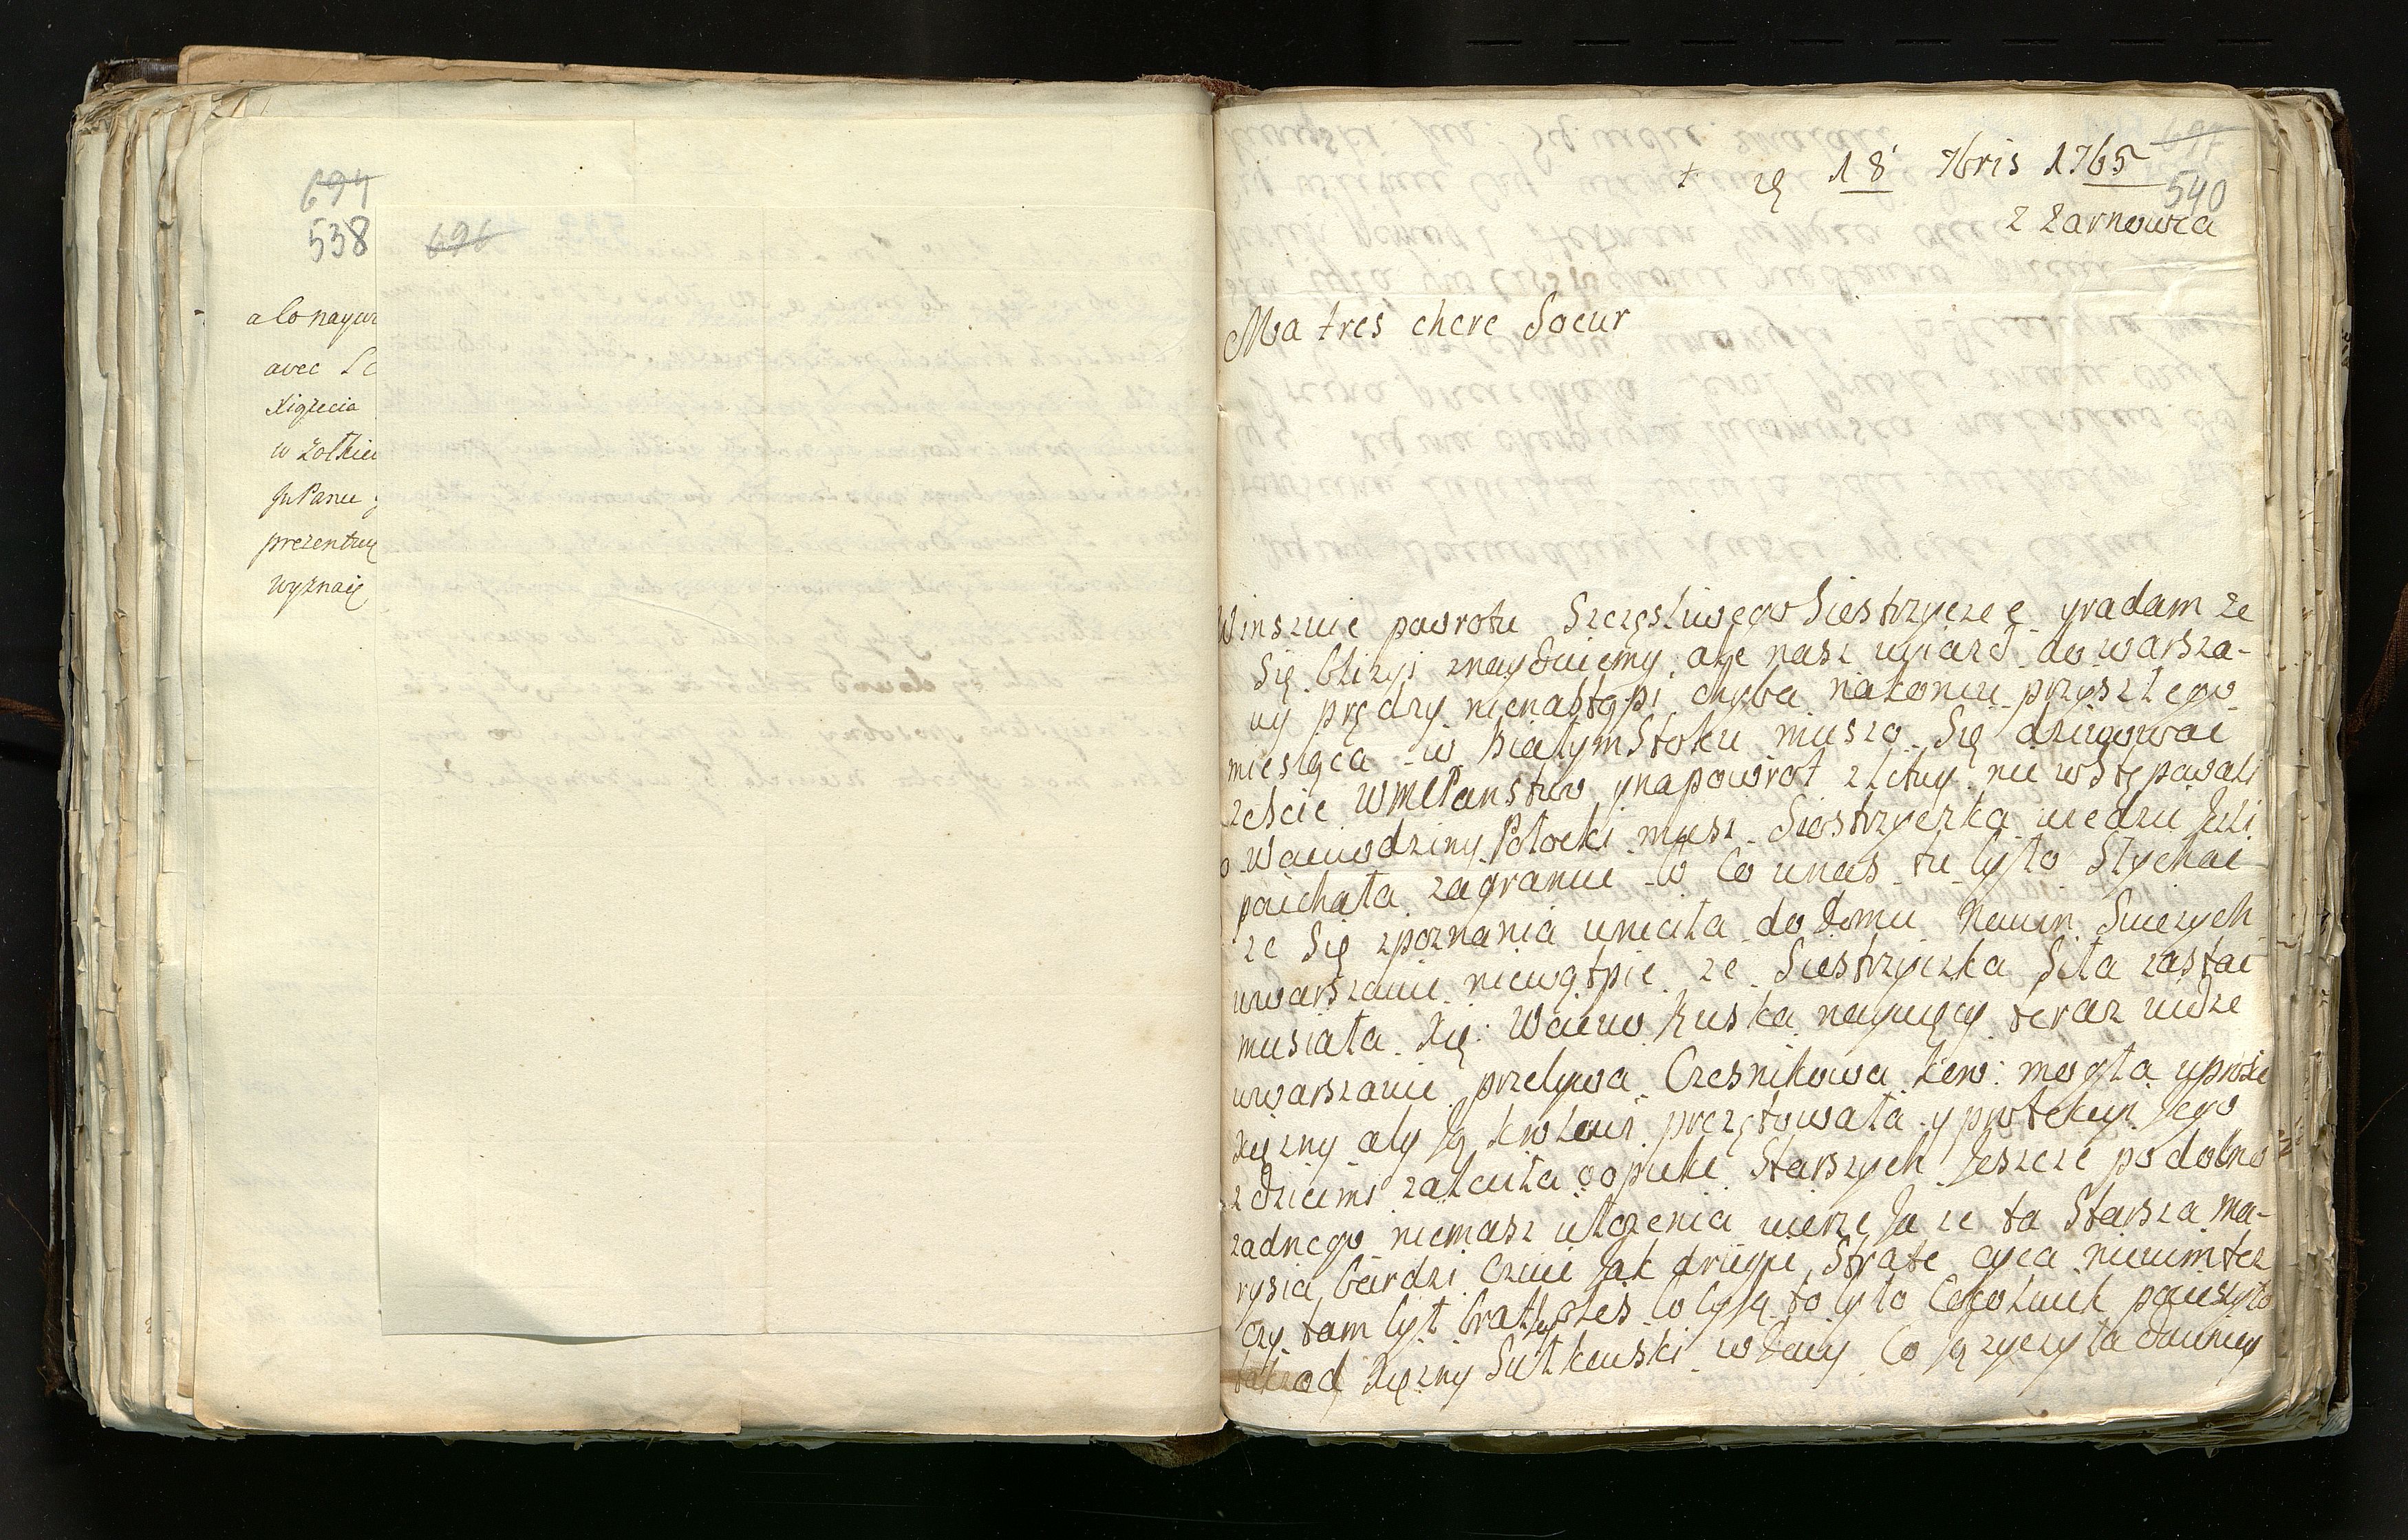 694
538
696
a Co nayur
avec Le
Xiązecia
w Zołkiew
JnPanu
prezentuy
wyznaię,
+ 18 7bris 1765
540
z Zarnowca
Ma tres chere Soeur
Winszuie powrotu Szczęsliwego Siestrzycze e yradam ze
Się blizyi znayduiemy, ale nasz uyiazd do warsza-
wy prędzy nienastąpi chyba nakoncu przyszłego
miesiąca w BiałymStoku muszo Się dziwowac
zescie WmcPanstwo ynapowrot zlitwy nie wstępowali
o Waiewodziny Potocki musz Siostrzyczka wiedzic Jesli
poiechała zagranice w Co unas tu było Słychac
ze Się zpoznania wrociła do domu Nowin Swiezych
wwarszawie niewątpie ze Siestrzyczka Siła zastac
musiała Xię: Woiew Ruska naywięcy teraz widze
wwarszawie przebywa Czesnikowa kor: mogła uprosic
Xięzny aby Ją krolowi prezętowała y protekcyi Jego
zdziecmi zaleciła o opiekę Starszych Jeszcze podobno
zadnego niemasz ułozenia wierzę Ja ze ta Starsza Ma-
rysia bardzi Czuie Jak drugie Strate oyca niewimtez
czy tam był brat Jozes bo był to było Cokolwiek powszyto
od Xięzny Sułkowski wdowy Co Ją zyczyła dawniey